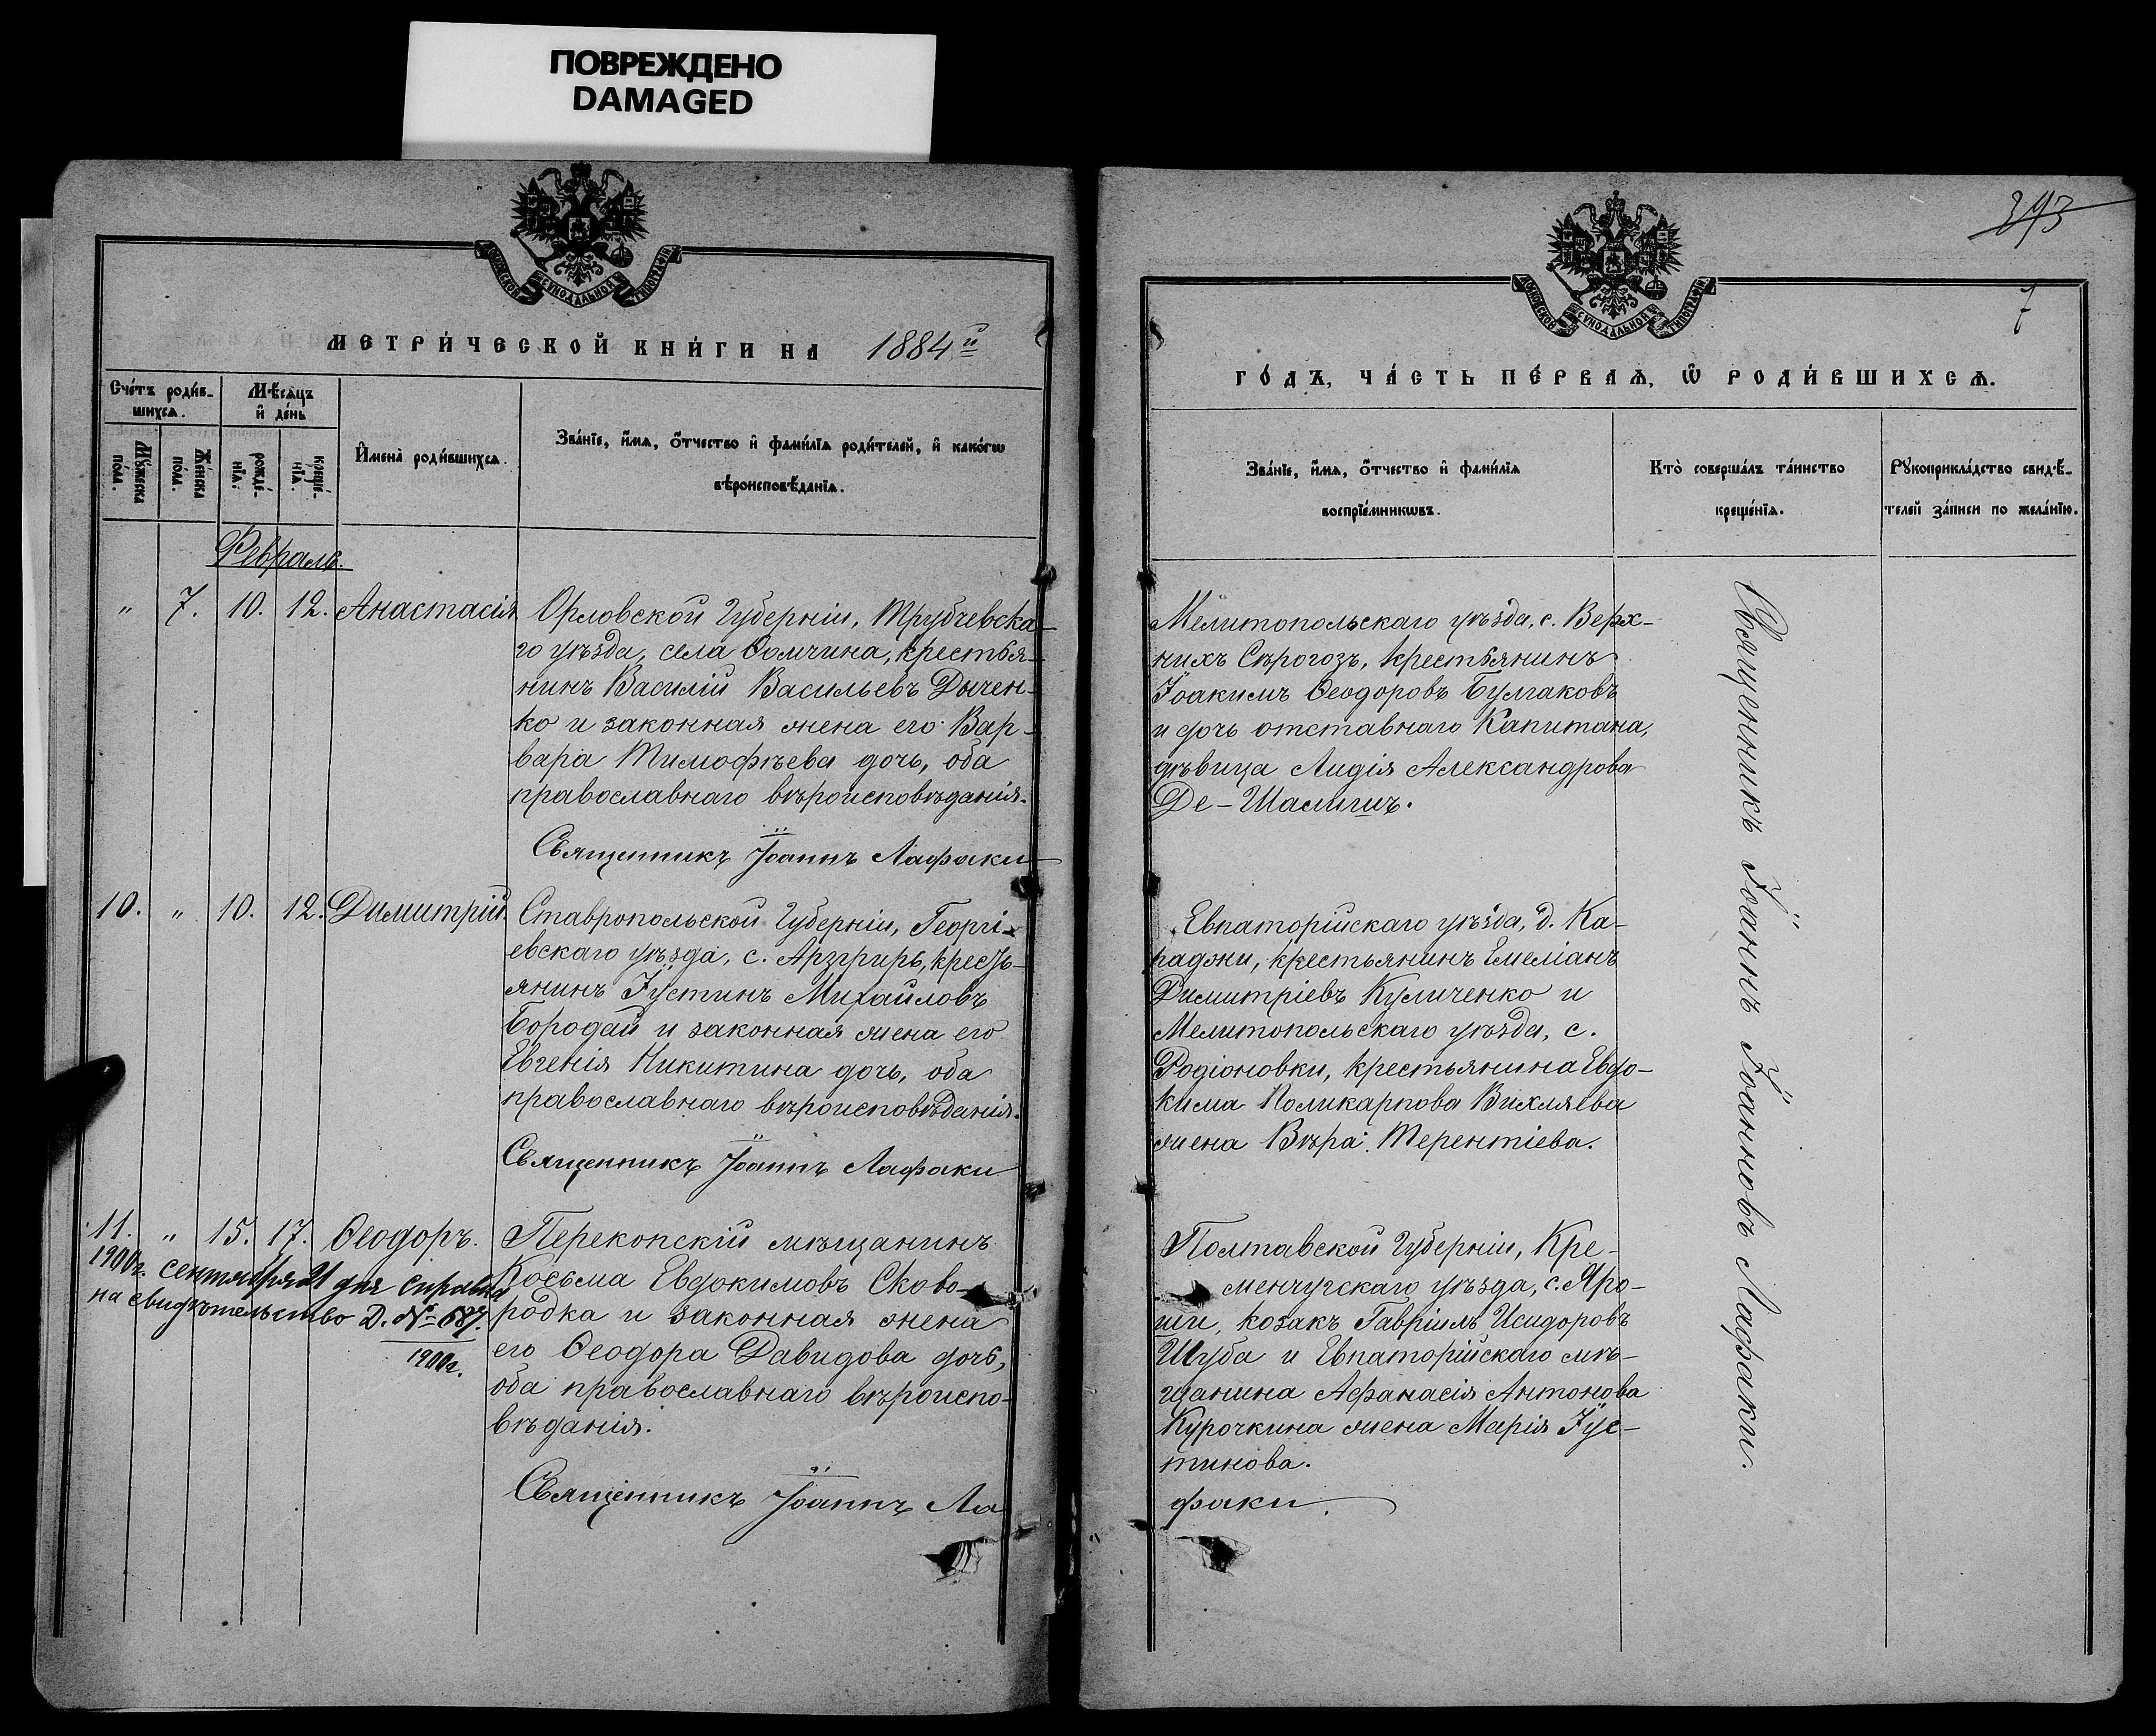 ПОВРЕЖДЕНО
DAMAGED
МОСКОВСКОЙ СѴНОДАЛЬНОЙ ТИПОГРАФІИ
МЕТРИ́ЧЕСКОЙ КНИ́ГИ НА 1884й
Сче́тъ роди́в-
шихсѧ.
Мѣ́сѧцъ
и҆ де́нь
Мꙋ́жеска
по́ла.
Же́нска
по́ла.
рожде́-
нїѧ.
креще́-
нїѧ.
И҆мена̀ роди́вшихсѧ.
Зва́нїе, и҆́мѧ, ѻ҆́тчество и҆ фами́лїѧ роди́телей, и҆ како́гѡ
вѣроисповѣ́данїѧ.
Февраль.
" 7. 10. 12. Анастасія
Орловской Губерніи, Трубчевска-
го уѣзда, села Ѳомчина, крестья-
нинъ Василій Васильевъ Дычен-
ко и законная жена его Вар-
вара Тимофѣева дочь, оба
православнаго вѣроисповѣданія.
Священникъ Іоаннъ Лафаки
10. " 10. 12. Димитрій.
Ставропольской Губерніи, Георгі-
евскаго уѣзда, с. Арзгирь, кресть-
янинъ Іустинъ Михайловъ
Бородай и законная жена его
Евгенія Никитина дочь, оба
православнаго вѣроисповѣданія.
Священникъ Іоаннъ Лафаки
11. " 15. 17. Ѳеодоръ.
1900г. сентября 21 дня справка
на свидѣтельство Д. № 687.
1900г.
Перекопскій мѣщанинъ
Косьма Евдокимовъ Сково-
родка и законная жена
его Ѳеодора Давидова дочь,
оба православнаго вѣроиспо-
вѣданія.
Священникъ Іоаннъ Ла
393
7
МОСКОВСКОЙ СѴНОДАЛЬНОЙ ТИПОГРАФІИ
ГО́ДЪ, ЧА́СТЬ ПЕ́РВАѦ, Ѡ҆ РОДИ́ВШИХСѦ.
Зва́нїе, и҆́мѧ, ѻ҆́тчество и҆ фами́лїѧ
воспрїе́мникѡвъ.
Кто̀ соверша́лъ та́инство
креще́нїѧ.
Рꙋкоприкла́дство свидѣ́-
телей за́писи по жела́нїю.
Мелитопольскаго уѣзда, с. Верх-
нихъ Сѣрогозъ, крестьянинъ
Іоакимъ Ѳеодоровъ Булгаковъ
и дочь отставнаго Капитана,
дѣвица Лидія Александрова
Де-Шамишъ.
Евпаторійскаго уѣзда, д. Ка-
раджи, крестьянинъ Емеліанъ
Димитріевъ Куличенко и
Мелитопольскаго уѣзда, с.
Родіоновки, крестьянина Евдо-
кима Поликарпова Вихляева
жена Вѣра Терентіева.
Полтавской Губерніи, Кре-
менчугскаго уѣзда, с. Яро-
ши, козакъ Гавріилъ Исидоровъ
Шуба и Евпаторійскаго мѣ-
щанина Афанасія Антонова
Курочкина жена Марія Іус-
тинова.
факи.
Священникъ Іоаннъ Іоанновъ Лафаки.